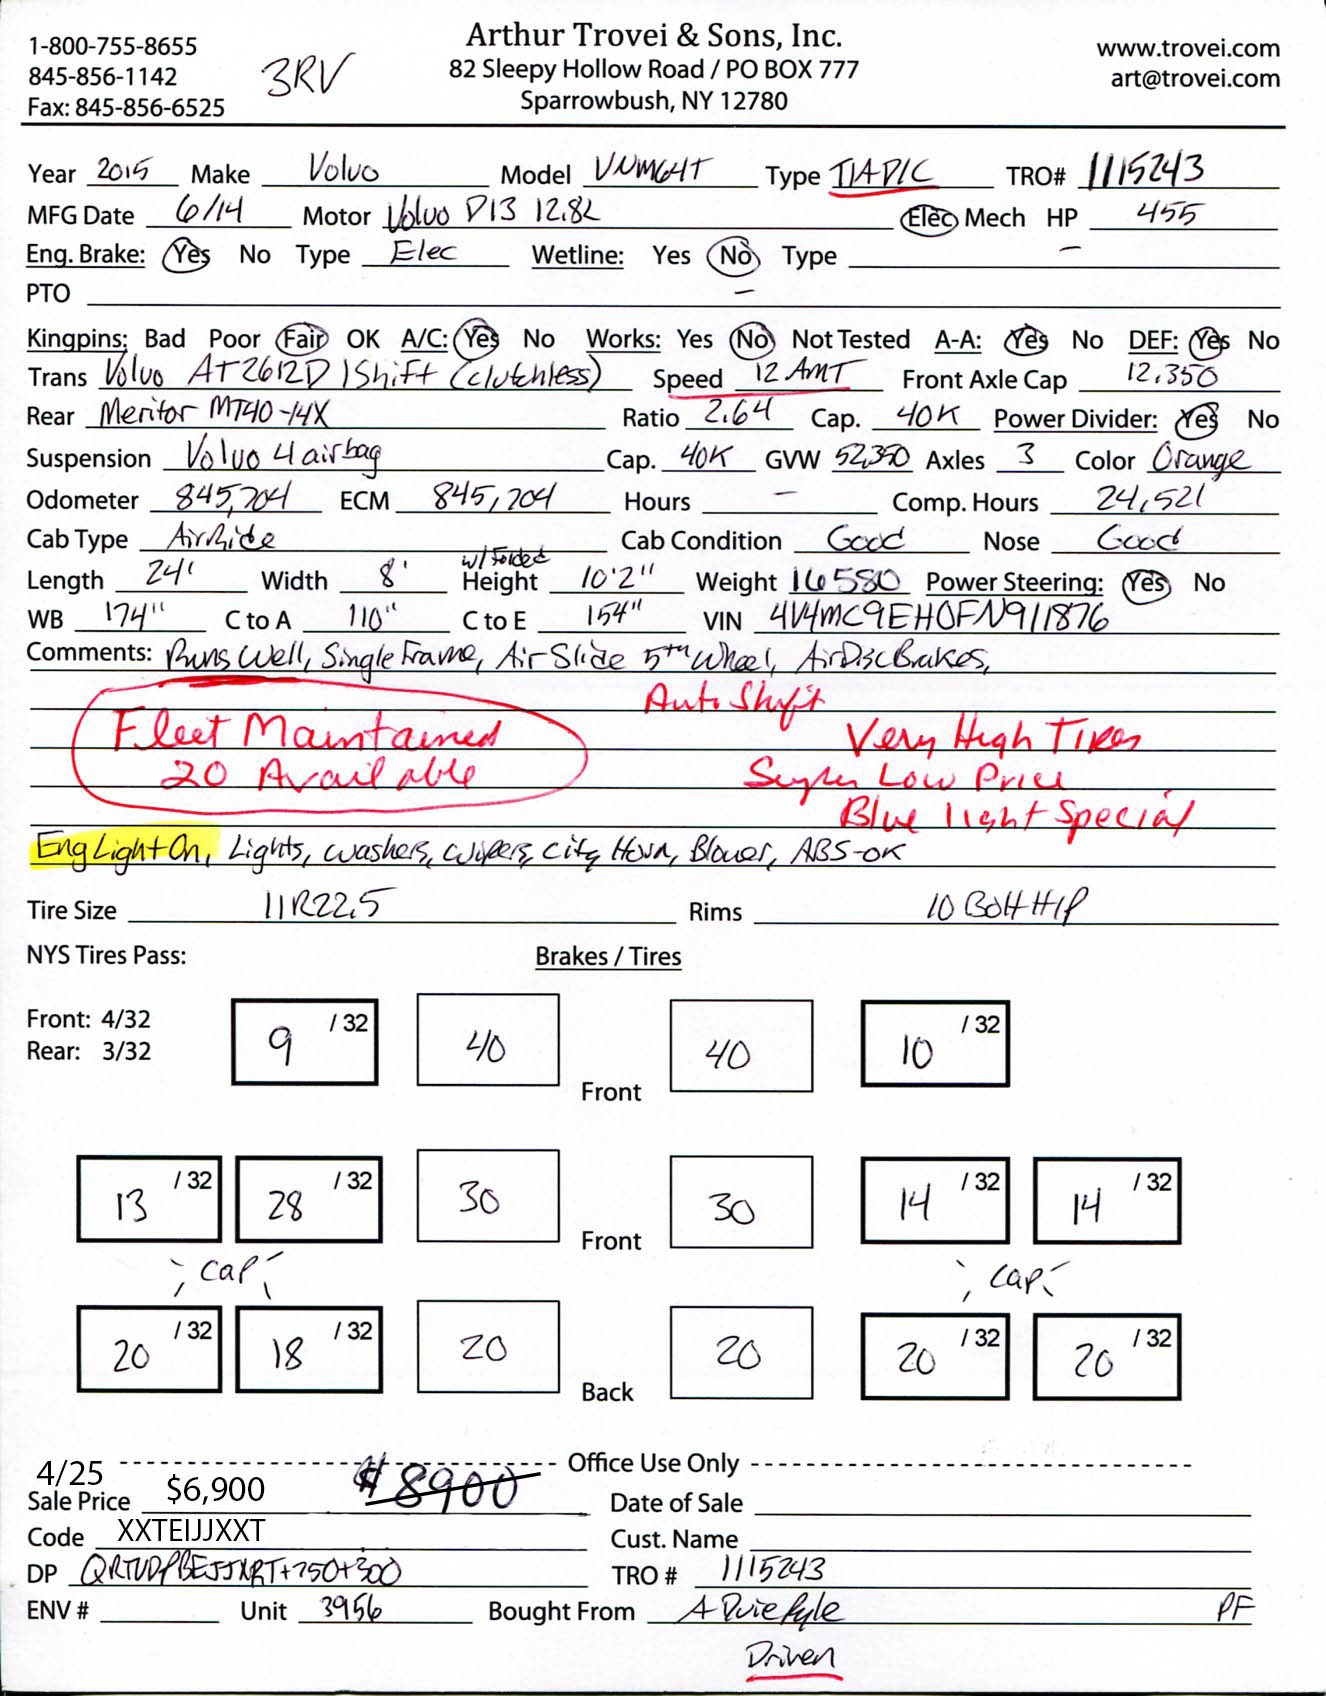 1-800-755-8655
845-856-1142
Fax: 845-856-6525
3RV
Arthur Trovei & Sons, Inc.
82 Sleepy Hollow Road / PO BOX 777
Sparrowbush, NY 12780
www.trovei.com
art@trovei.com
Year 2015 Make Volvo Model VNM64T Type T/A D/C TRO# 1115243
MFG Date 6/14 Motor Volvo D13 12.8L Elec Mech HP 455
Eng. Brake: Yes No Type Elec Wetline: Yes No Type –
PTO –
Kingpins: Bad Poor Fair OK A/C: Yes No Works: Yes No Not Tested A-A: Yes No DEF: Yes No
Trans Volvo AT2612D IShift (clutchless) Speed 12 AMT Front Axle Cap 12,350
Rear Meritor MT40-14X Ratio 2.64 Cap. 40K Power Divider: Yes No
Suspension Volvo 4 airbag Cap. 40K GVW 52,350 Axles 3 Color Orange
Odometer 845,704 ECM 845,704 Hours – Comp. Hours 24,521
Cab Type AirRide Cab Condition Good Nose Good
Length 24' Width 8' w/ Folded Height 10'2" Weight 16580 Power Steering: Yes No
WB 174" C to A 110" C to E 154" VIN 4V4MC9EH0FN911876
Comments: Runs Well, Single Frame, Air Slide 5th Wheel, Air Disc Brakes,
Auto Shift
Fleet Maintained
20 Available
Very High Tires
Super Low Price
Blue light Special
Eng Light On, Lights, washers, wipers, city Horn, Blower, ABS-OK
Tire Size 11R22.5 Rims 10 Bolt H/P
NYS Tires Pass: Brakes / Tires
Front: 4/32
Rear: 3/32
9 /32 40 Front 40 10 /32
13 /32 28 /32 30 Front 30 14 /32 14 /32
cap cap
20 /32 18 /32 20 Back 20 20 /32 20 /32
Office Use Only
4/25
Sale Price $6,900 $8900 Date of Sale
Code XXTEIJJXXT Cust. Name
DP +750+300 TRO # 1115243
ENV # Unit 3956 Bought From A Duie Pyle PF
Driven